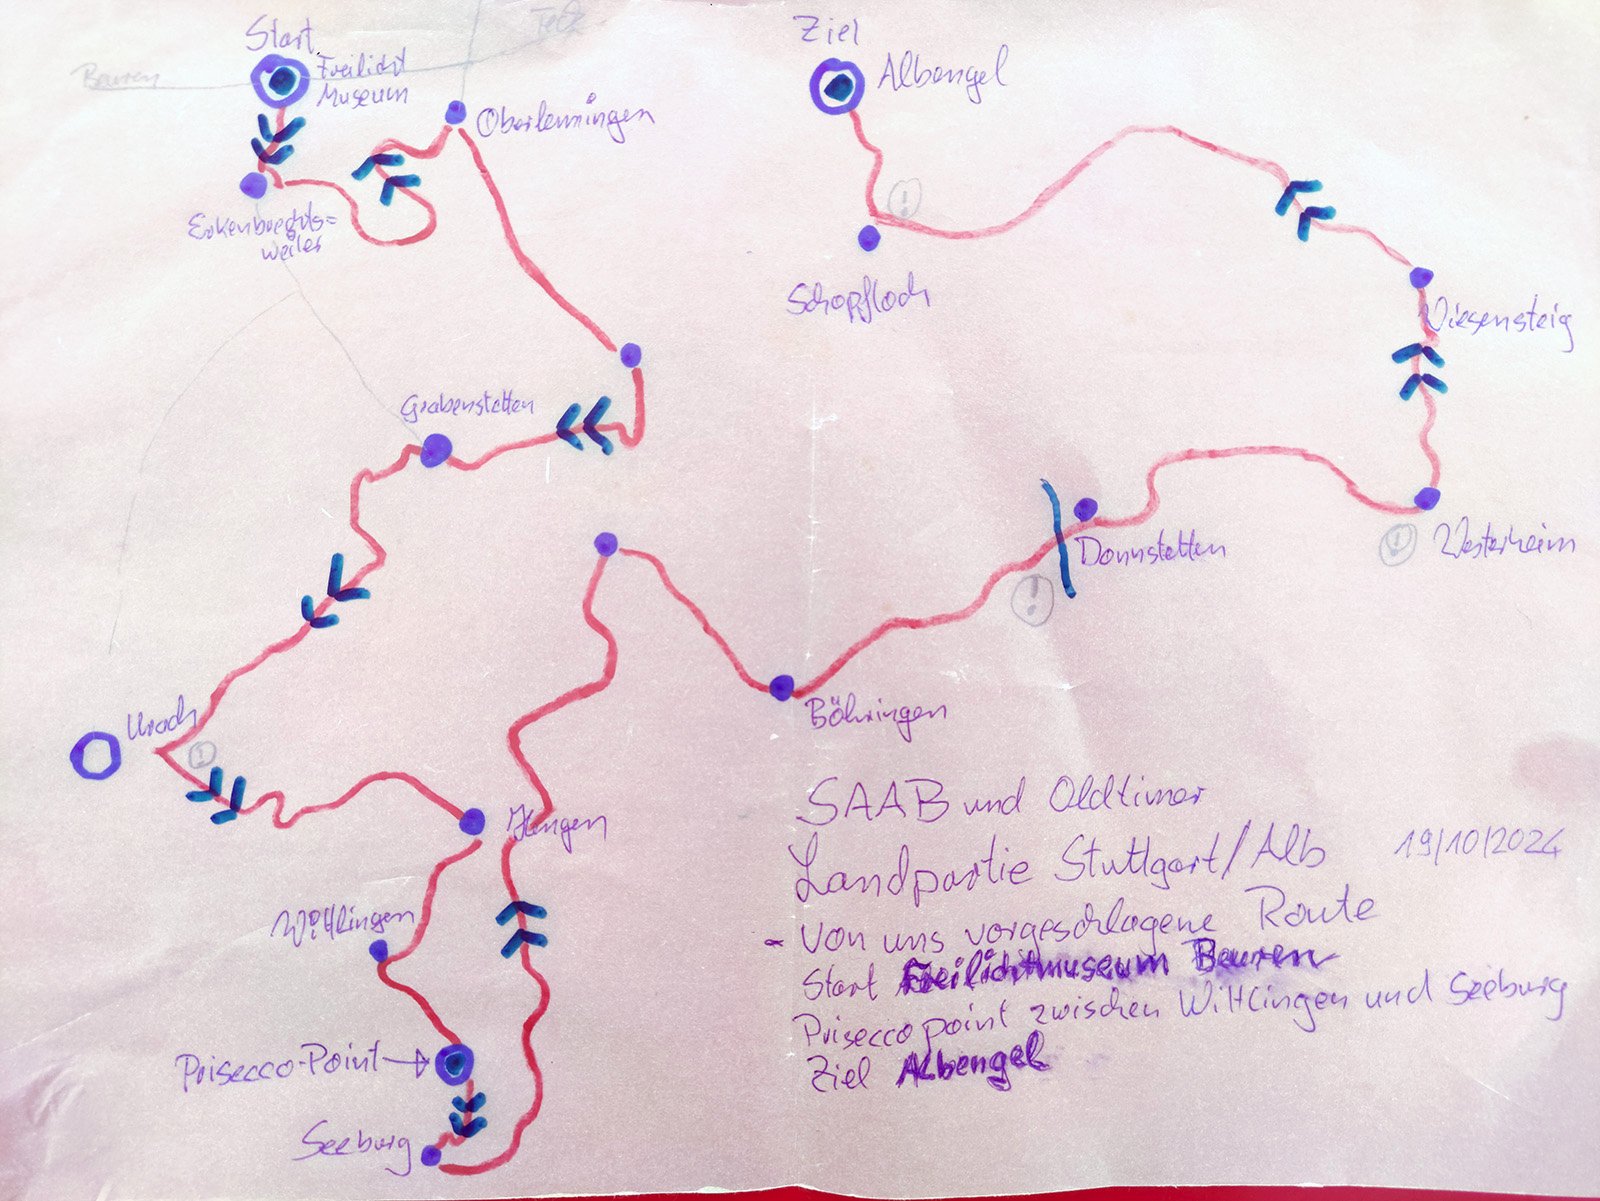 Start
Freilicht
Museum
Beuren
Teck
Oberlenningen
Erkenbrechts=
weiler
Grabenstetten
Urach
!
Hengen
Wittlingen
Prisecco-Point
Seeburg
Ziel
Albengel
!
Schopfloch
Wiesensteig
!
Westerheim
Donnstetten
!
Böhringen
SAAB und Oldtimer
Landpartie Stuttgart/Alb 19/10/2024
- Von uns vorgeschlagene Route
Start Freilichtmuseum Beuren
Priseccopoint zwischen Wittlingen und Seeburg
Ziel Albengel